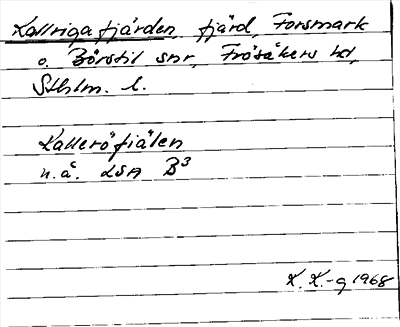 Kallrigafjärden, fjärd, Forsmark
o. Börstil snr, Frösåkers hd,
Sthlm. l.
Kalleröfjälen
u.å. LSA B3
K. K.-g 1968